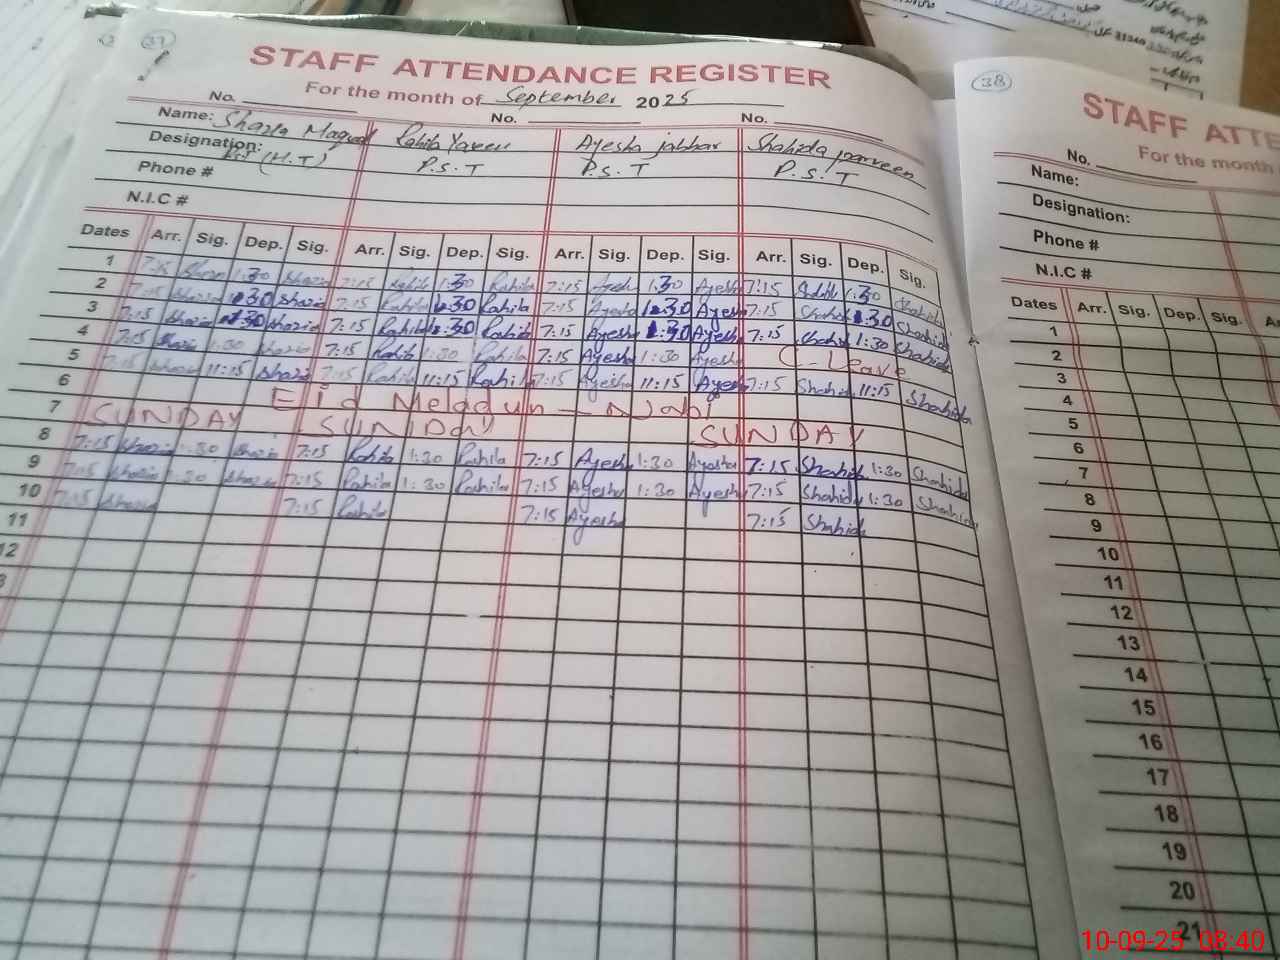 37
STAFF ATTENDANCE REGISTER
For the month of September 2025
No. No. No.
Name: Shazia Maqsood Rahila Yaseen Ayesha jabbar Shahida parveen
Designation: PST (H.T) P.S.T P.S.T P.S.T
Phone #
N.I.C #
Dates Arr. Sig. Dep. Sig. Arr. Sig. Dep. Sig. Arr. Sig. Dep. Sig. Arr. Sig. Dep. Sig.
1 7:15 Shazia 1:30 Shazia 7:15 Rahila 1:30 Rahila 7:15 Ayesha 1:30 Ayesha 7:15 Shahida 1:30 Shahida
2 7:15 Shazia 1:30 Shazia 7:15 Rahila 1:30 Rahila 7:15 Ayesha 1:30 Ayesha 7:15 Shahida 1:30 Shahida
3 7:15 Shazia 1:30 Shazia 7:15 Rahila 1:30 Rahila 7:15 Ayesha 1:30 Ayesha 7:15 Shahida 1:30 Shahida
4 7:15 Shazia 1:30 Shazia 7:15 Rahila 1:30 Rahila 7:15 Ayesha 1:30 Ayesha C-Leave
5 7:15 Shazia 11:15 Shazia 7:15 Rahila 11:15 Rahila 7:15 Ayesha 11:15 Ayesha 7:15 Shahida 11:15 Shahida
6 Eid Meladun-Nabi
7 SUNDAY SUNDAY SUNDAY
8 7:15 Shazia 1:30 Shazia 7:15 Rahila 1:30 Rahila 7:15 Ayesha 1:30 Ayesha 7:15 Shahida 1:30 Shahida
9 7:15 Shazia 1:30 Shazia 7:15 Rahila 1:30 Rahila 7:15 Ayesha 1:30 Ayesha 7:15 Shahida 1:30 Shahida
10 7:15 Shazia 7:15 Rahila 7:15 Ayesha 7:15 Shahida
11
12
38
STAFF ATTE
For the month
No.
Name:
Designation:
Phone #
N.I.C #
Dates Arr. Sig. Dep. Sig.
1
2
3
4
5
6
7
8
9
10
11
12
13
14
15
16
17
18
19
20
21
10-09-25 08:40